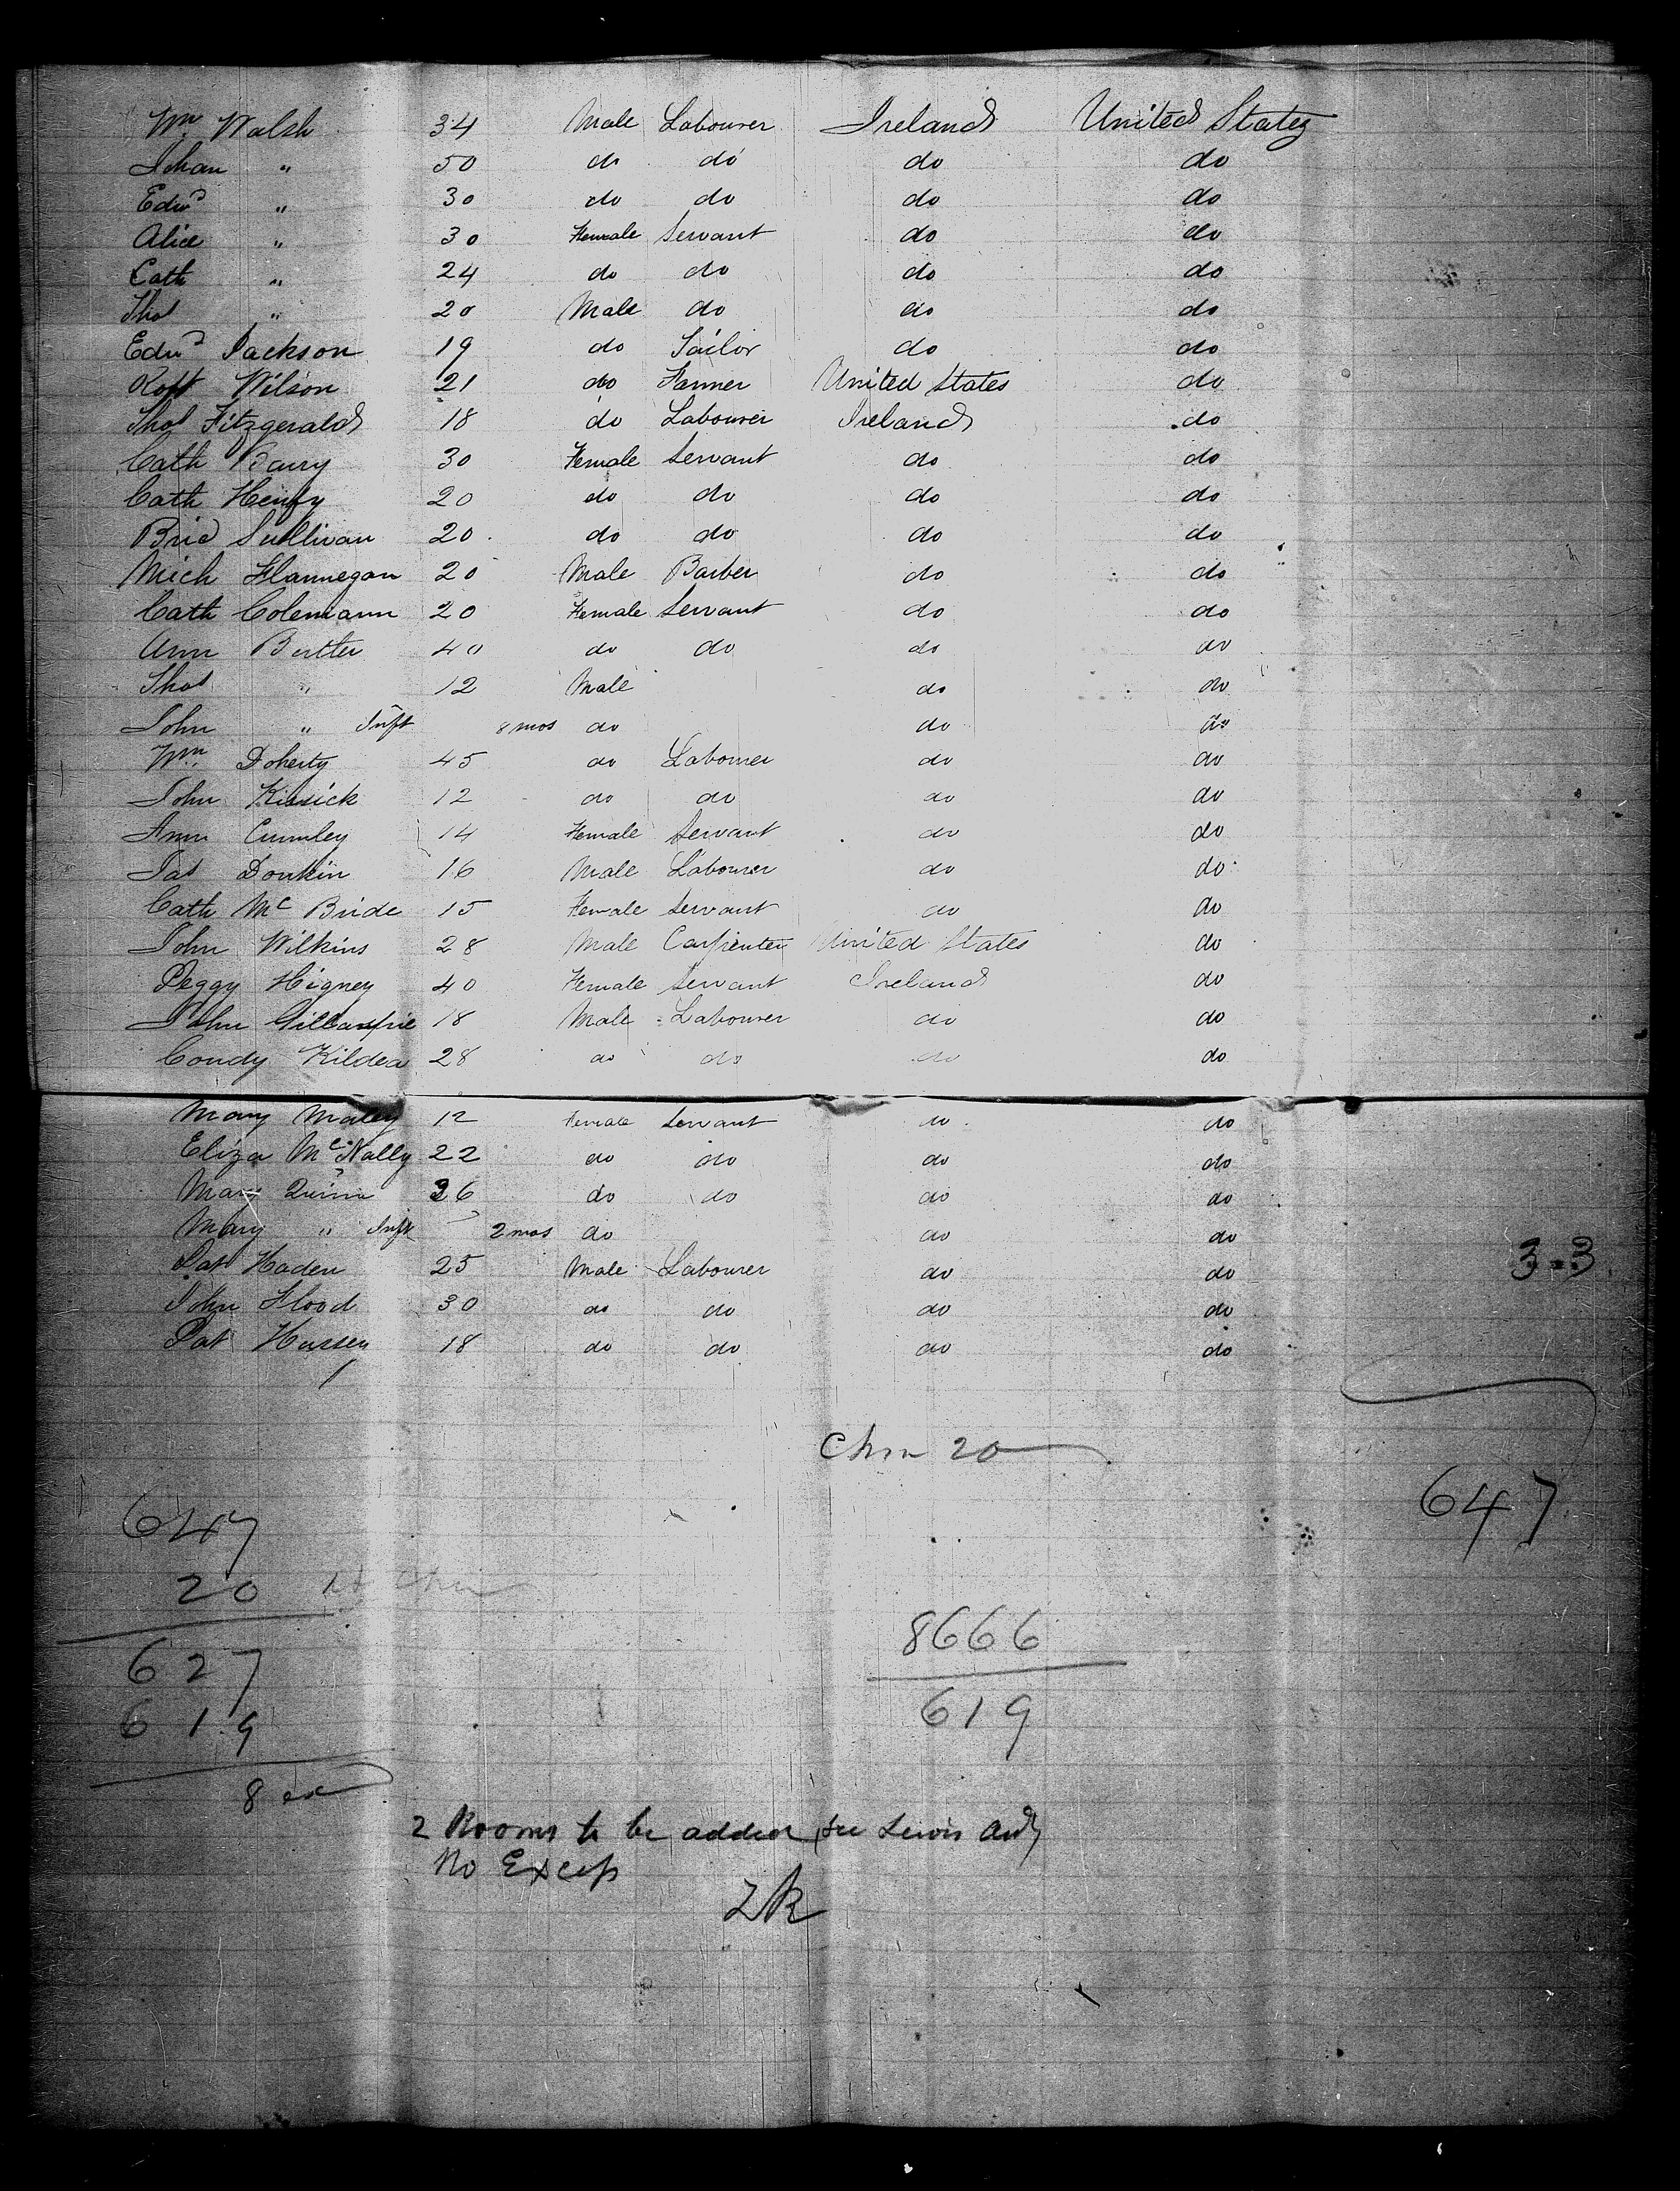 Wm Walsh 34 Male Labourer Ireland United States
Johan " 50 do do do do
Edwd " 30 do do do do
Alice " 30 Female Servant do do
Cath " 24 do do do do
Thos " 20 Male do do do
Edwd Jackson 19 do Tailor do do
Robt Wilson 21 do Farmer United States do
Thos Fitzgerald 18 do Labourer Ireland do
Cath Barry 30 Female Servant do do
Cath Henry 20 do do do do
Brid Sullivan 20 do do do do
Mich Flannegan 20 Male Barber do do
Cath Colemann 20 Female Servant do do
Ann Butler 40 do do do do
Thos " 12 Male do do
John " Inft 8 mos do do do
Wm Doherty 45 do Labourer do do
John Kissick 12 do do do do
Ann Cumley 14 Female Servant do do
Jas Donkin 16 Male Labourer do do
Cath Mc Bride 15 Female Servant do do
John Wilkins 28 Male Carpenter United States do
Peggy Higney 40 Female Servant Ireland do
John Gillaspie 18 Male Labourer do do
Condy Kildea 28 do do do do
Mary Maley 12 Female Servant do do
Eliza McNally 22 do do do do
Mary Quinn 26 do do do do
Mary " Inft 2 mos do do do
Pat Haden 25 Male Labourer do do
John Flood 30 do do do do
Pat Hussey 18 do do do do
33
Chn 20
647
647
20
627
619
8 ex
8666
619
2 Rooms to be added see Lewis
No Excess